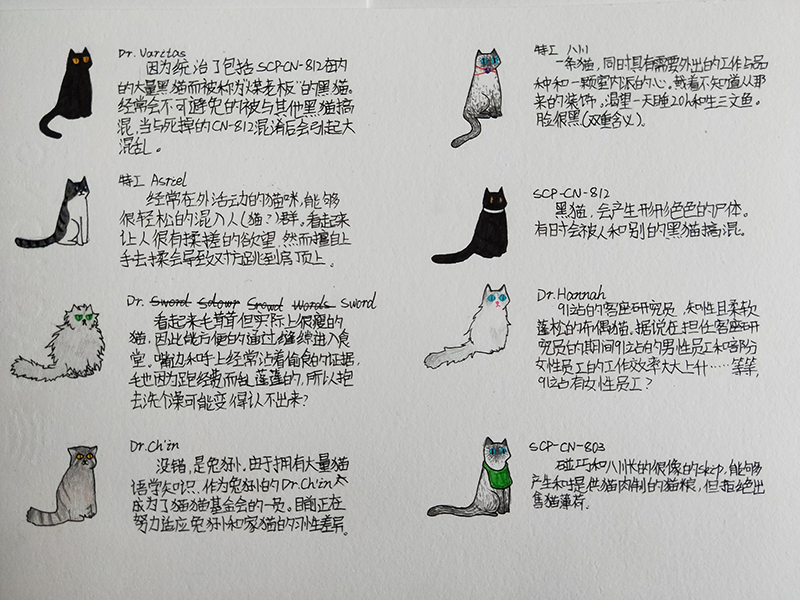 Dr. Varitas
因为统治了包括SCP-CN-812在内
的大量黑猫而被称为“煤老板”的黑猫。
经常会不可避免的被与其他黑猫搞
混,当与死掉的CN-812混淆后会引起大
混乱。
特工 Asriel
经常在外活动的猫咪,能够
很轻松的混入人(猫?)群。看起来
让人很有揉搓的欲望,然而擅自上
手去揉会导致对方跳到房顶上。
Dr. Sword Sdowr Srowd Words Sword
看起来毛茸茸但实际上很瘦的
猫,因此能方便的通过门缝进入食
堂。嘴边和手上经常沾着偷食的证据,
毛也因为跑经费而乱蓬蓬的,所以抱
去洗个澡可能变得认不出来?
Dr.Ch'in
没错,是兔狲。由于拥有大量猫
语学知识,作为兔狲的Dr.Ch'in
成为了猫猫基金会的一员。目前正在
努力适应兔狲和家猫的习性差异。
特工 八川
一条猫,同时具有需要外出的工作与品
种和一颗室内派的心。戴着不知道从哪
来的装饰,渴望一天睡20h和吃三文鱼。
脸很黑(双重含义)。
SCP-CN-812
黑猫,会产生形形色色的尸体。
有时会被人和别的黑猫搞混。
Dr.Hannah
91站的客座研究员,知性且柔软
蓬松的布偶猫。据说在担任客座研
究员的期间91站的男性员工和部分
女性员工的工作效率大大上升……等等,
91站有女性员工?
SCP-CN-803
碰巧和八川长的很像的skip,能够
产生和提供猫肉制的猫粮,但拒绝出
售猫薄荷。